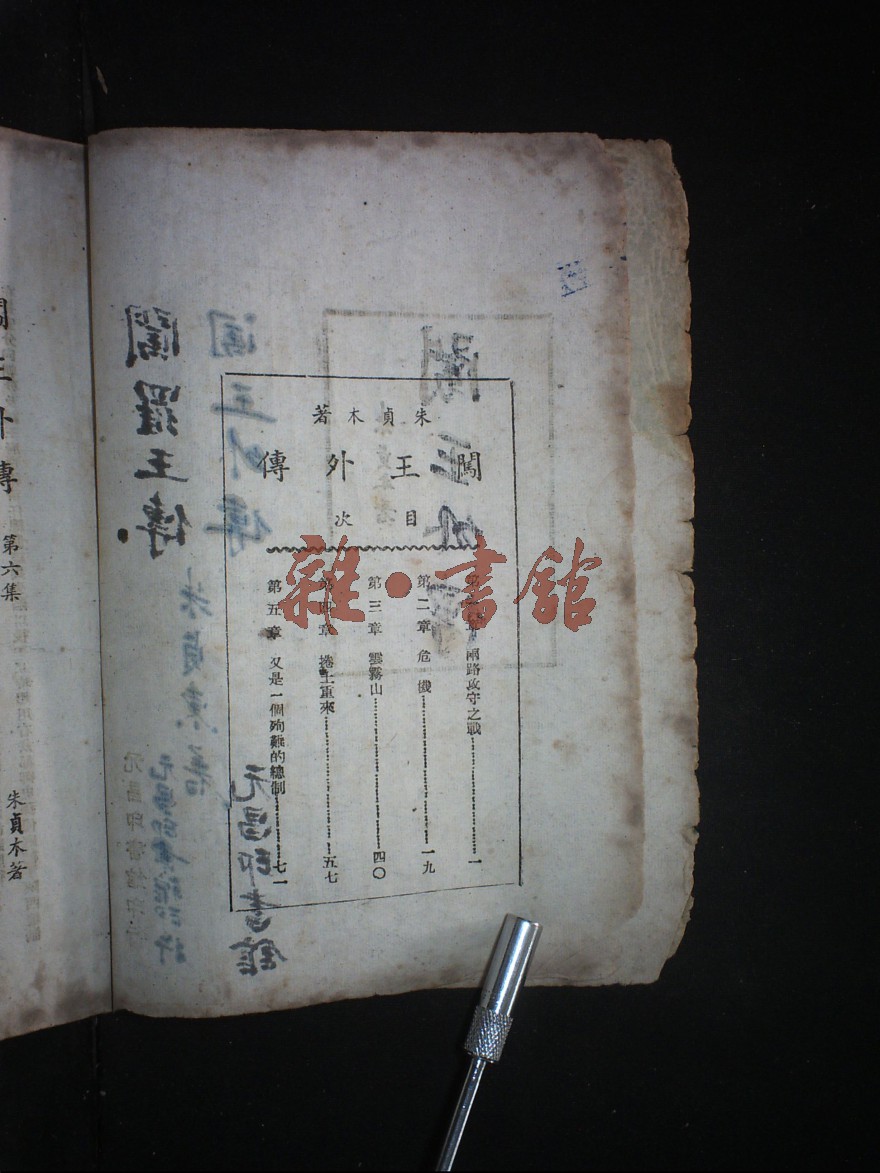 朱貞木著
闖王外傳
目次
第一章 兩路攻守之戰 一
第二章 危機 一九
第三章 雲霧山 四〇
第四章 捲土重來 五七
第五章 又是一個殉難的總制 七一
雜·書館
闖王外傳
闖王外傳
朱貞木著
元昌印書館
闖羅王傳.
元昌印書館印行
王外傳 第六集
朱貞木著